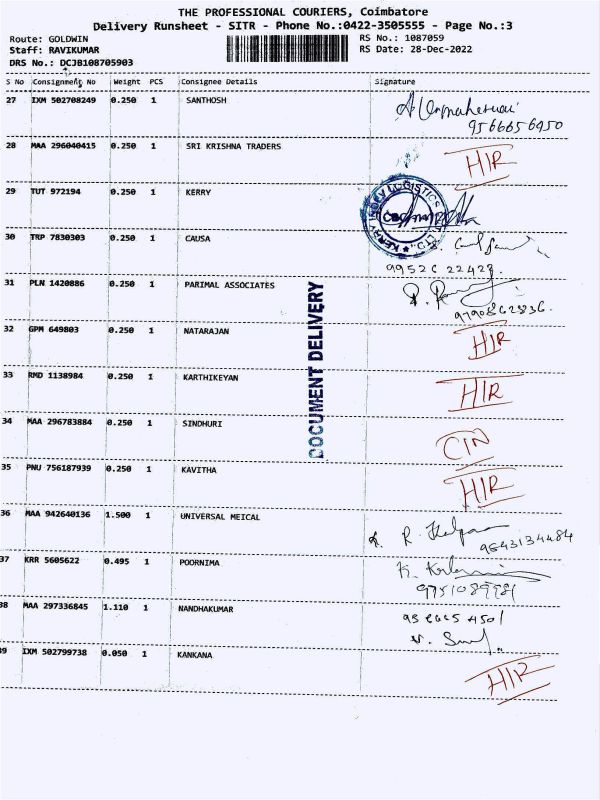 THE PROFESSIONAL COURIERS, Coimbatore
Delivery Runsheet - SITR - Phone No.:0422-3505555 - Page No.:3
Route: GOLDWIN RS No.: 1087059
Staff: RAVIKUMAR RS Date: 28-Dec-2022
DRS No.: DCJB108705903
S No Consignment No Weight PCS Consignee Details Signature
27 IXM 502708249 0.250 1 SANTHOSH
9566656950
28 MAA 296040415 0.250 1 SRI KRISHNA TRADERS HIR
29 TUT 972194 0.250 1 KERRY
KERRY INDEV LOGISTICS
30 TRP 7830303 0.250 1 CAUSA
31 PLN 1420886 0.250 1 PARIMAL ASSOCIATES
DOCUMENT DELIVERY
32 GPM 649803 0.250 1 NATARAJAN HIR
33 RMD 1138984 0.250 1 KARTHIKEYAN HIR
34 MAA 296783884 0.250 1 SINDHURI CIN
35 PNU 756187939 0.250 1 KAVITHA HIR
36 MAA 942640136 1.500 1 UNIVERSAL MEICAL
9543134484
37 KRR 5605622 0.495 1 POORNIMA
9751089981
38 MAA 297336845 1.110 1 NANDHAKUMAR
39 IXM 502799738 0.050 1 KANKANA HIR